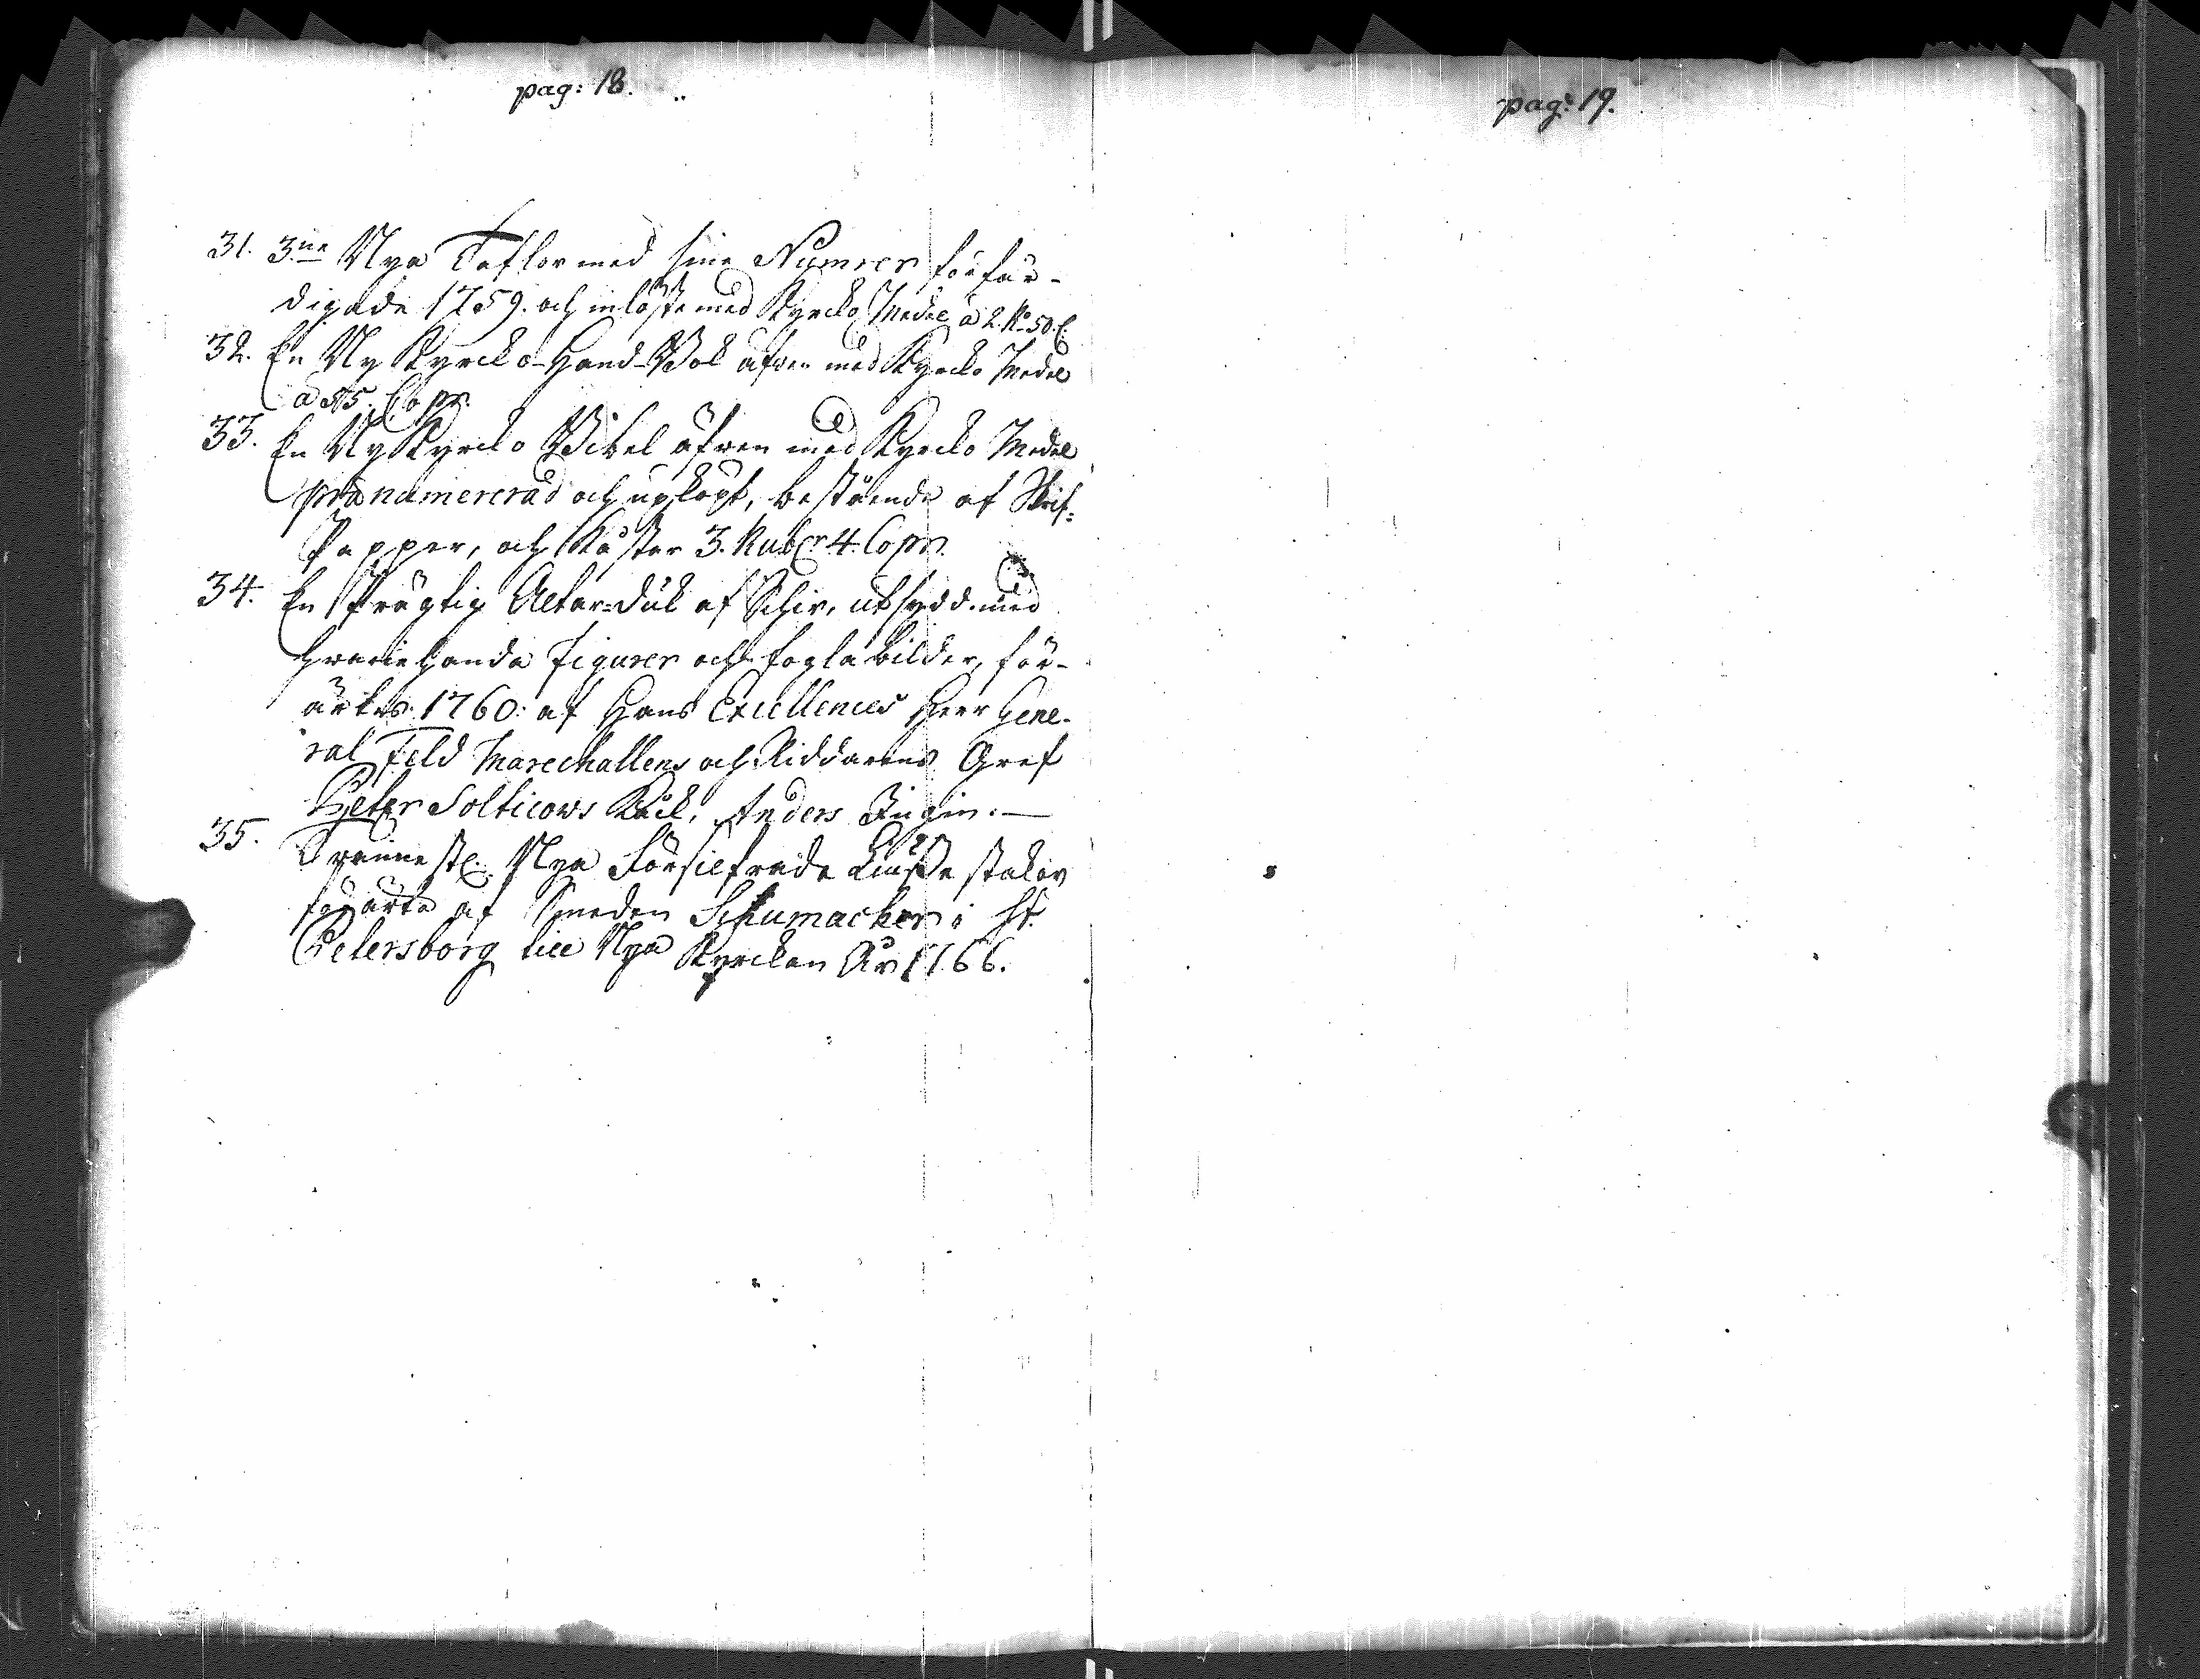 pag: 18.
31. 3ne Nya Taflor med sine Numrer förfär-
digade 1759. och inlöste med Kyrcko Medel a 2. R. 50. C.
32. En Ny Kyrcko-Hand-Bok äfwen med Kyrcko Medel
a 85. Cop.
33. En Ny Kyrcko Bibel äfwen med Kyrcko Medel
prænumererad och upköpt, bestående af Skrif-
Papper, och Kåstar 3. Rubr 4. Cop.
34. En Prägtig Altar-Duk af Schir, utsydd med
hwariehanda Figurer och fogla bilder, för-
ärtes 1760: af Hans Excellences Herr Gene-
ral Feld Marechallens och Riddarens Gref
Peter Solticows Anders
35. Twänne st. Nya Försilfrade Liusse stakar
förärte af Smeden Schumacher i St.
Petersborg till Nya Kyrckan År 1766.
pag: 19.